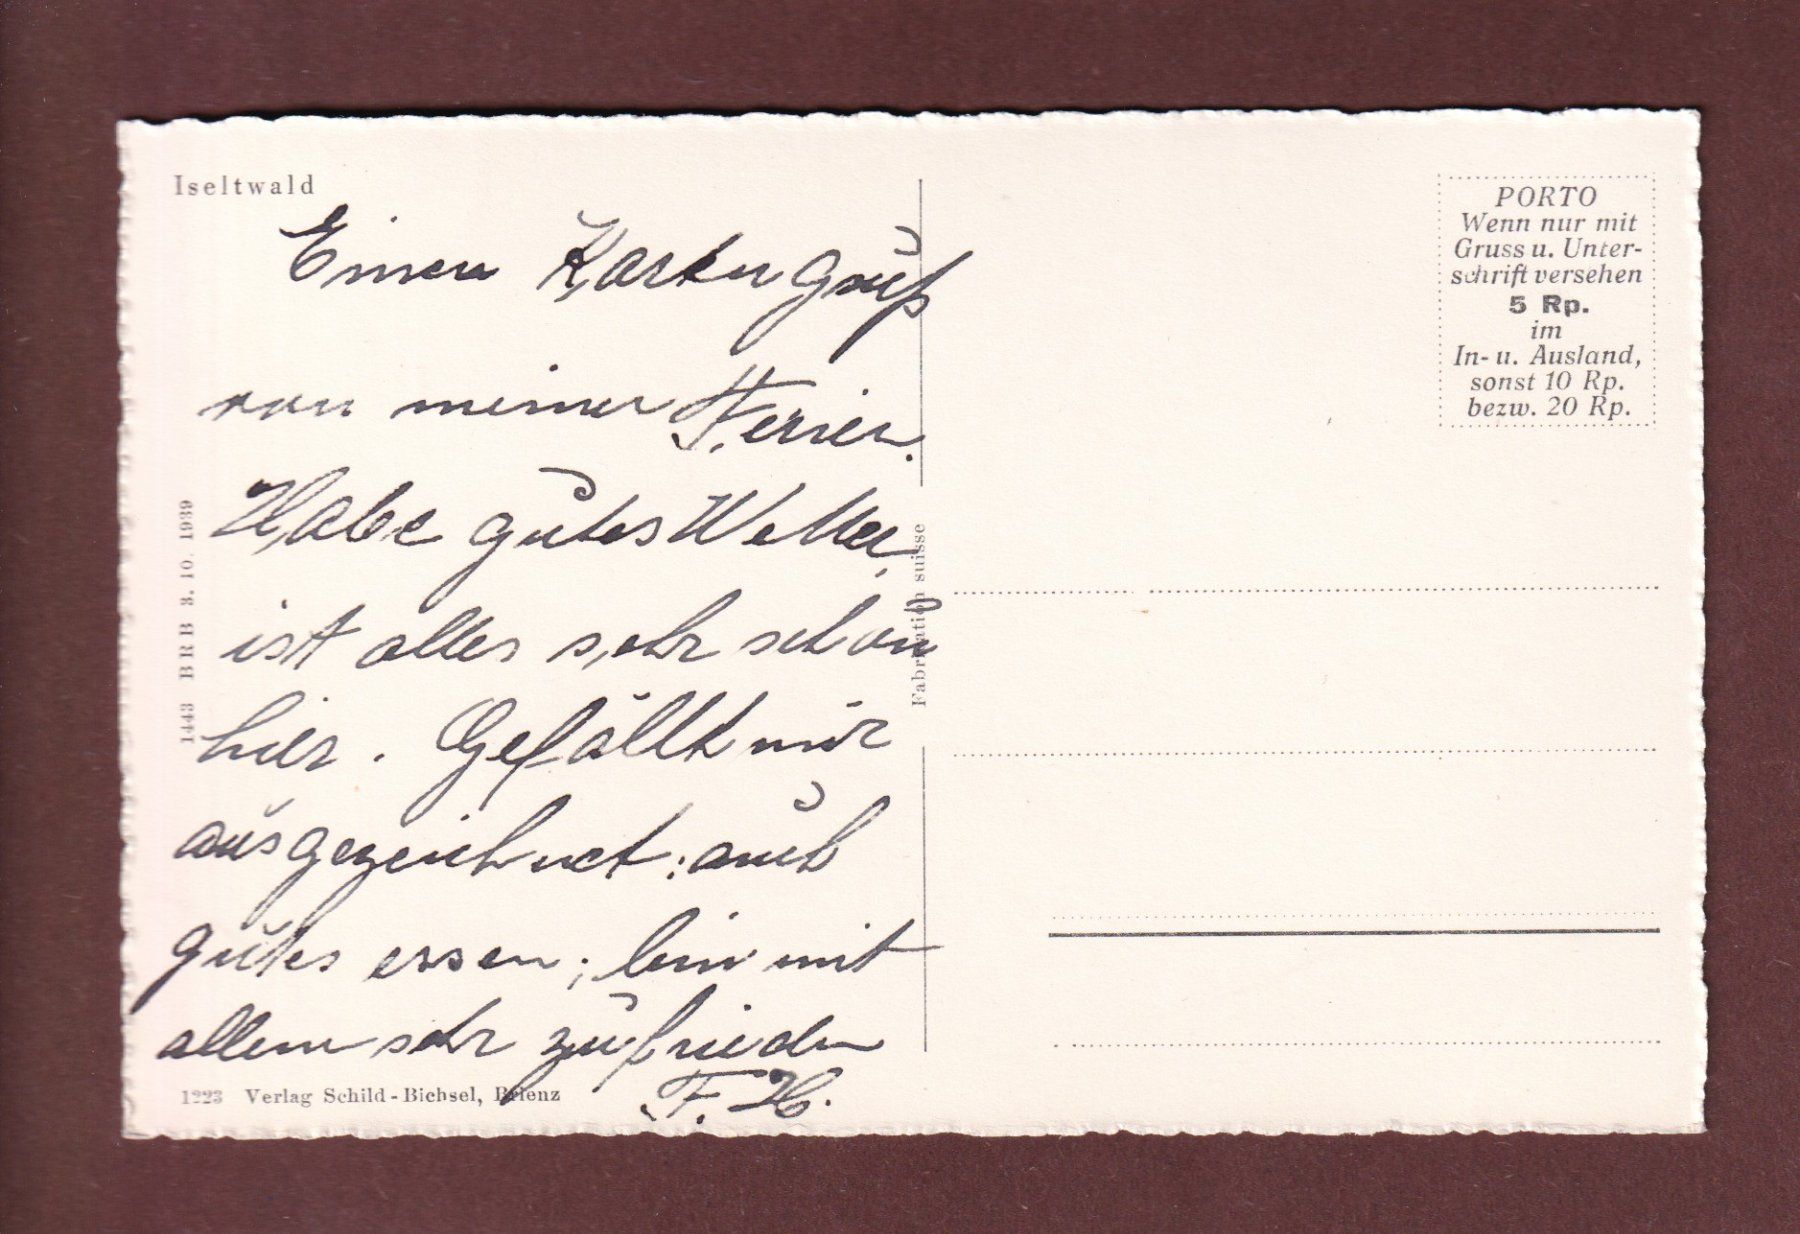 Iseltwald
Einen Kartengruß
von meiner Ferien.
Habe gutes Wetter,
ist alles sehr schön
hier. Gefällt mir
ausgezeichnet; auch
gutes essen; bin mit
allem sehr zufrieden
F. H.
1443 BRB 3. 10. 1939
1223 Verlag Schild-Bichsel, Brienz
Fabrikation suisse
PORTO
Wenn nur mit
Gruss u. Unter-
schrift versehen
5 Rp.
im
In- u. Ausland,
sonst 10 Rp.
bezw. 20 Rp.